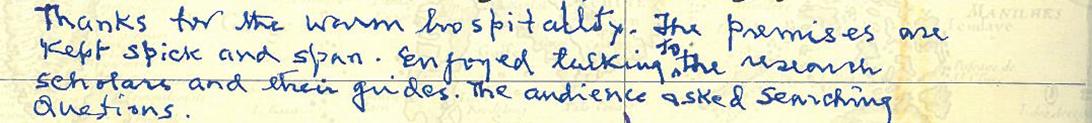 Thanks for the warm hospitality. The premises are
kept spick and span. Enjoyed talking to the research
scholars and their guides. The audience asked searching
Questions.